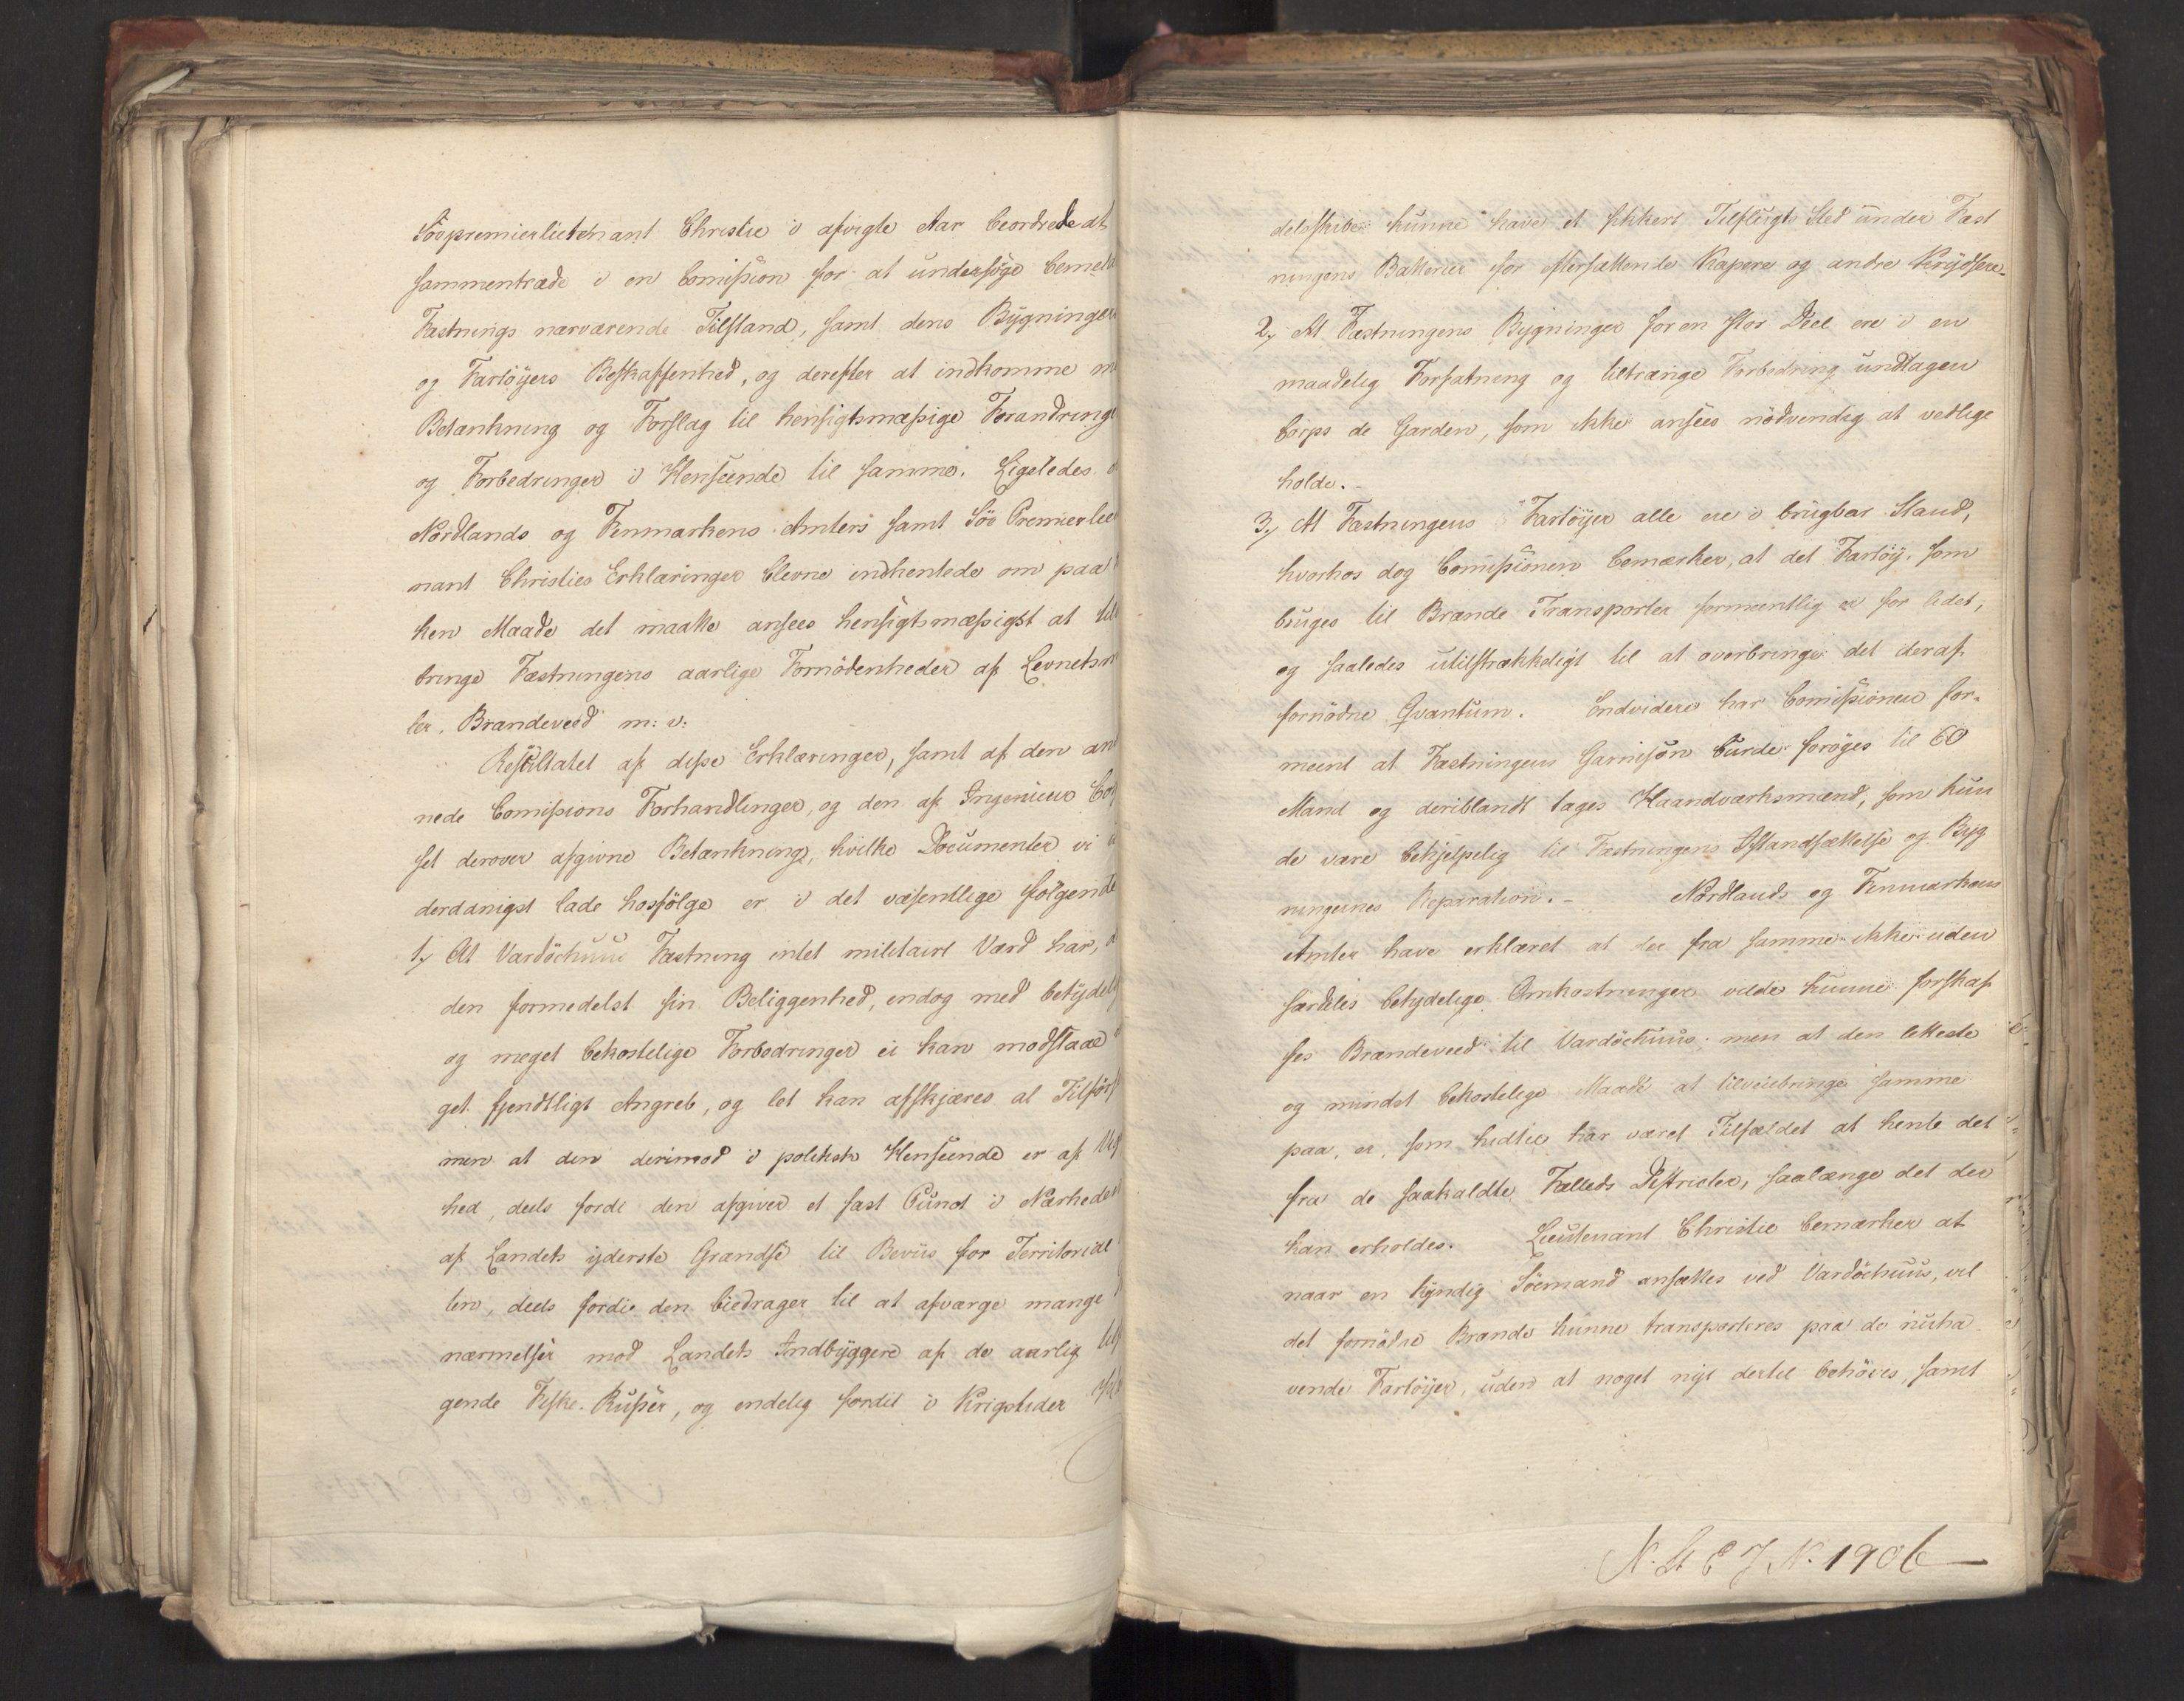 Söepremierlieutenant Christie i afvigte Aar beordrede at
sammentræde i en Comission for at undersöge bemel
Fæstnings nærværende Tilstand, samt dens Bygninger
og Fartöyers Beskaffenhed, og derefter at indkomme m
Betænkning og Forslag til hensigtsmæssige Forandringe
og Forbedringer i Henseende til samme. Ligeledes
Nordlands og Finmarkens Amters samt Söe Premierlieu
nant Christies Erklæringer blevne indhentede om paa
ken Maade det maatte ansees hensigtsmæssigst at til
bringe Fæstningens aarlige Fornödenheder af Levnetsm
ler, Brændeveed m: v:
Resultatet af disse Erklæringer, samt af den
nede Comissions Forhandlinger, og den af Ingenieur Cor
set derover afgivne Betænkning, hvilke Documenter vi
derdanigst lade hosfölge er i det væsentlige fölgende
1, At Vardöehuus Fæstning intet militairt Værd har,
den formedelst sin Beliggenhed, endog med betydelig
og meget bekostelige Forbedringer ei kan modstaae
get fjendtligt Angreb, og let kan afskjæres al Tilförs
men at den derimod i politisk Henseende er af
hed, deels fordi den afgiver et fast Punct i Nærheden
af Landets yderste Grændse til Beviis for Territorial
ten, deels fordi den biedrager til at afværge mange
nærmelser mod Landets Indbyggere af de aarlig
gende Fiske-Russer, og endelig fordi i Krigstider
delsskibe kunne have et sikkert Tilflugts Sted under Fæst
ningens Batterier for efterfættende Kapere og andre Krydsere.
2, At Fæstningens Bygninger for en stor Deel ere i en
maadelig Forfatning og tiltrænge Forbedring undtagen
Corps de Garden, som ikke ansees nödvendig at vedlige
holde.-
3, At Fæstningens Fartöyer alle ere i brugbar Stand,
hvorhos dog Comissionen bemærker, at det Fartöy, som
bruges til Brænde Transporter formeentlig er for lidet,
og saaledes utilstrækkeligt til at overbringe det deraf
fornödne Qvantum. Endvidere har Comissionen for-
meent at Fæstningens Garnison burde foröges til 60
Mand og deriblandt tages Haandværksmænd, som kun
de være behjelpelig til Fæstningens Istandsættelse og Byg
ningernes Reparation.- Nordlands og Finmarkens
Amter have erklæret at der fra samme ikke uden
særdeles betydelige Omkostninger vilde kunne forskaf
fes Brændeveed til Vardöehuus; men at den letteste
og mindst bekostelige Maade at tilveiebringe samme
paa, er, som hidtil har været Tilfældet at hente det
fra de saakaldte Fælleds Districter, saalænge det der
kan erholdes. Lieutenant Christie bemærker at
naar en kyndig Söemand ansættes ved Vardöehuus, vil
det fornödne Brænde kunne transporteres paa de nuha
vende Fartöyer, uden at noget nyt dertil behöves, samt
N. St E J. N. 1906